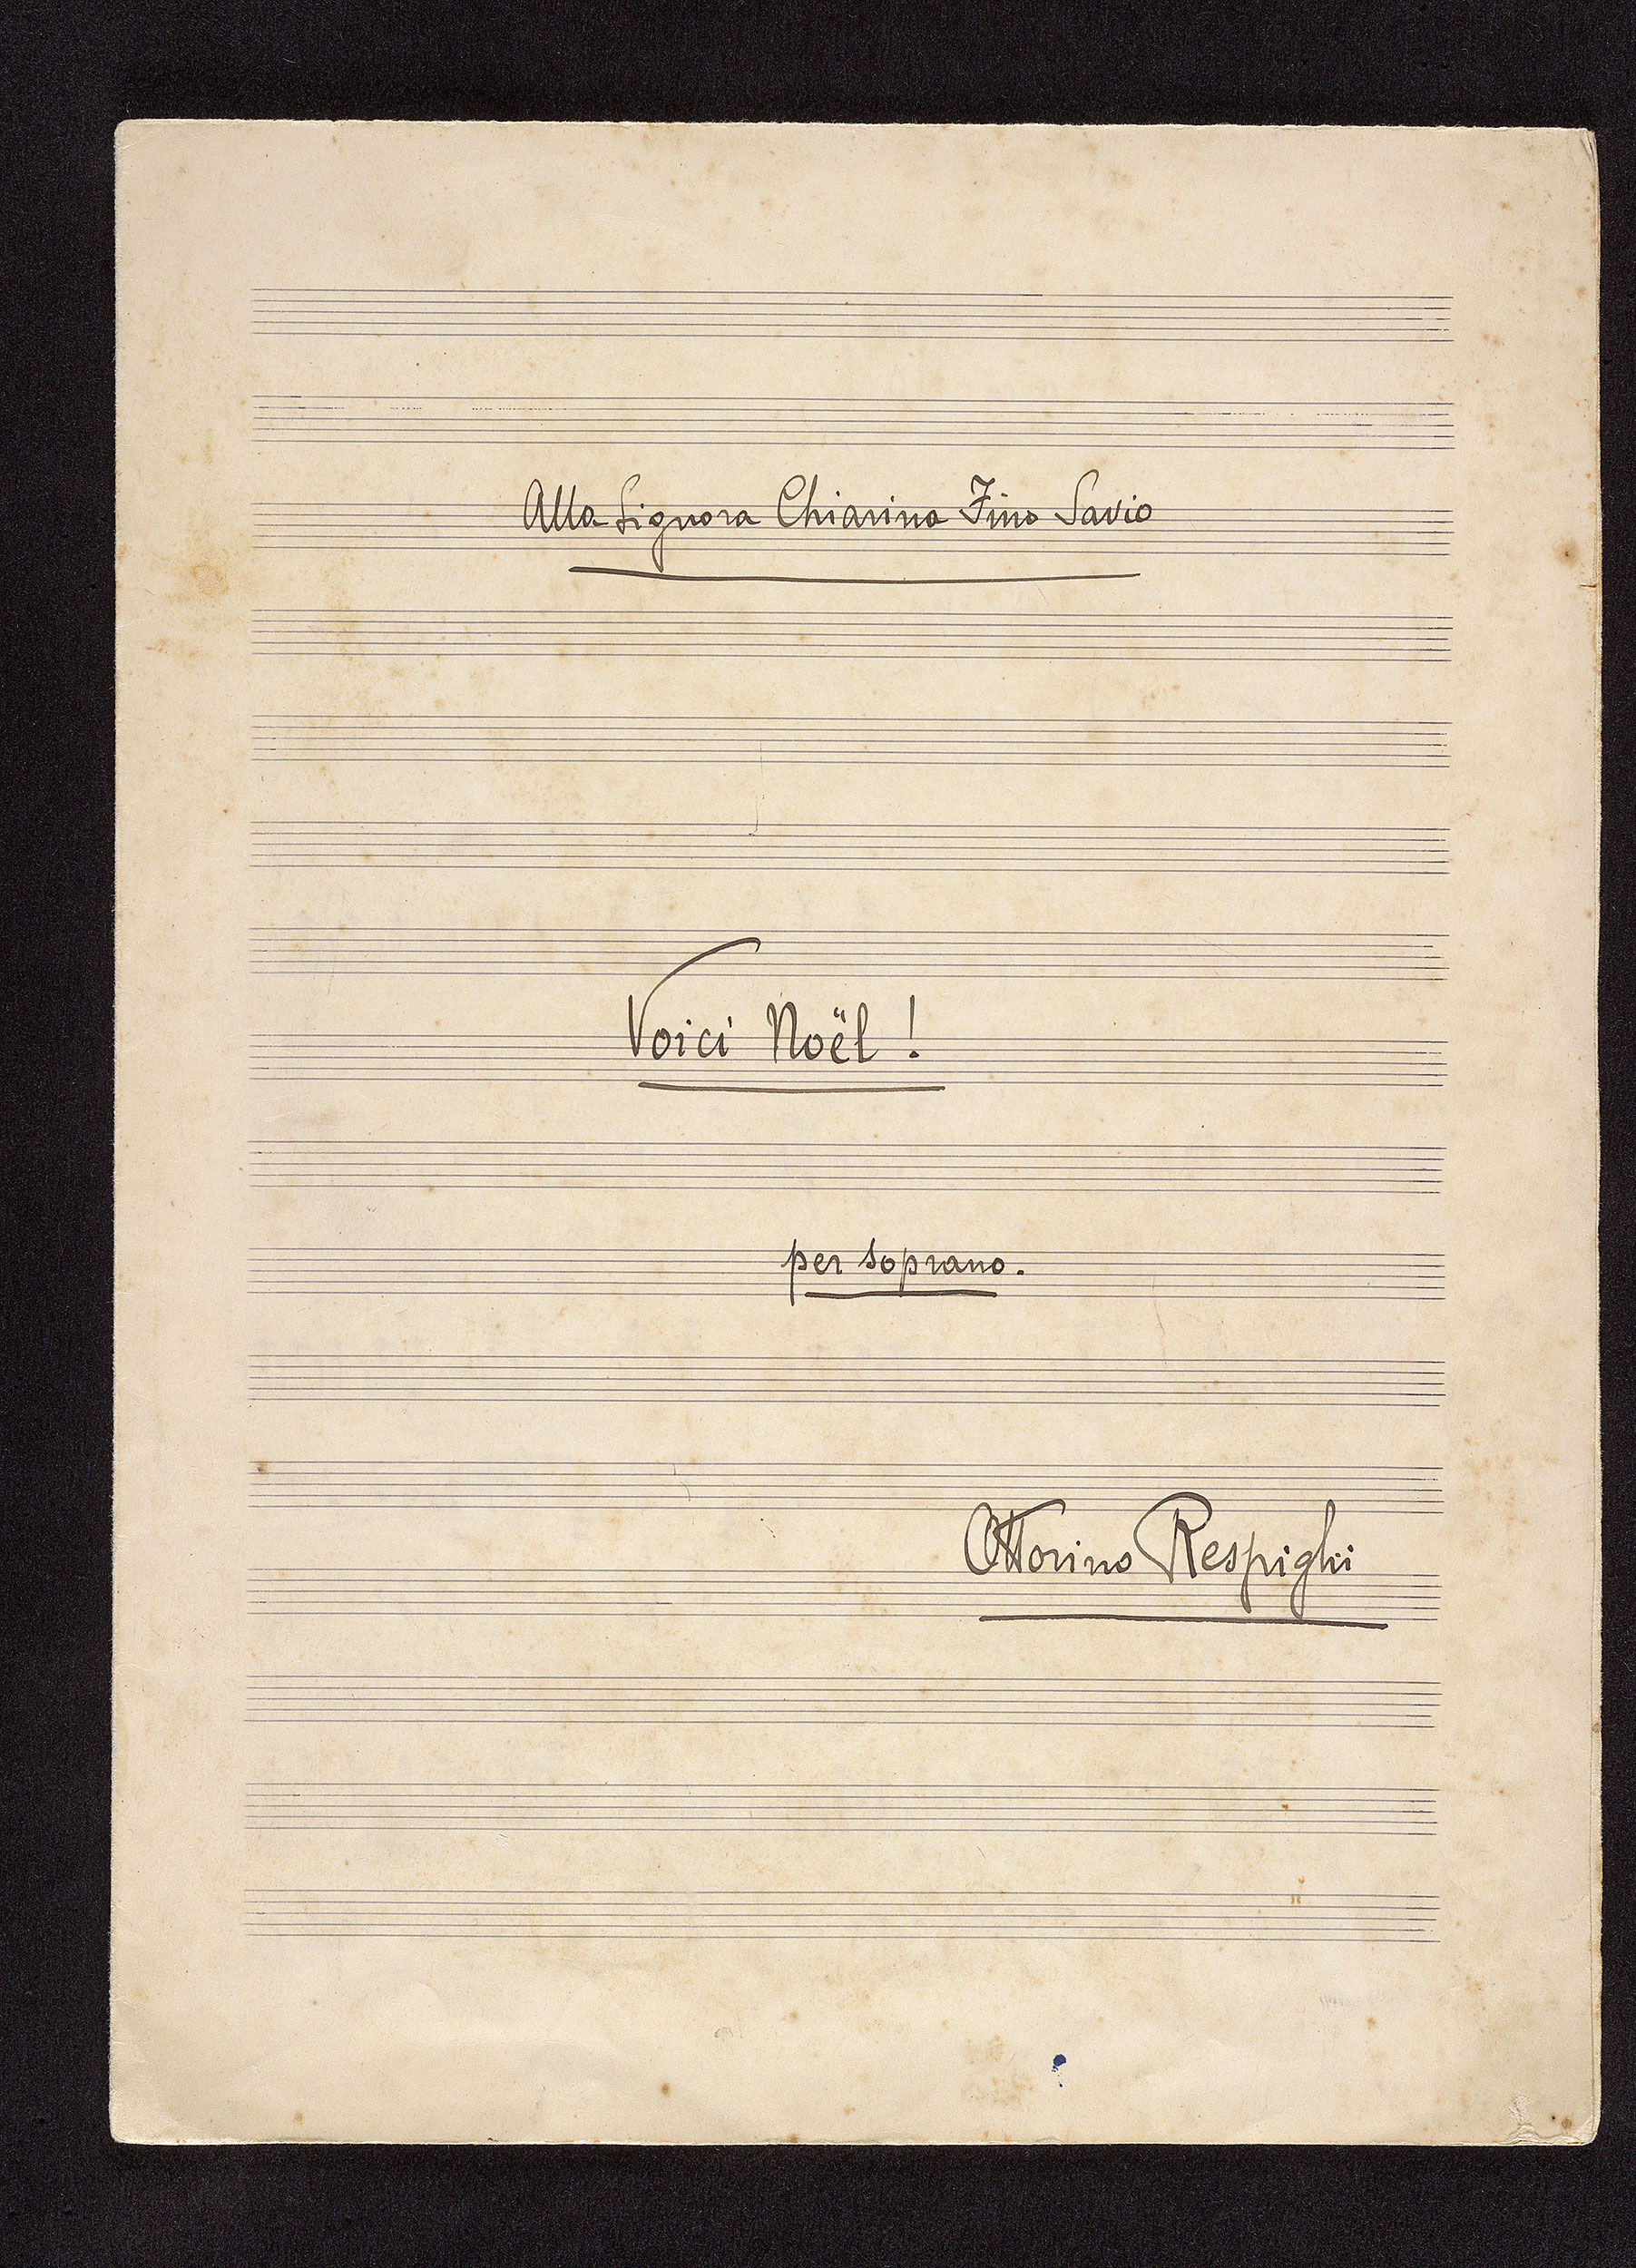 Alla Signora Chiarina Fino Savio
Voici Noël !
per soprano.
Ottorino Respighi